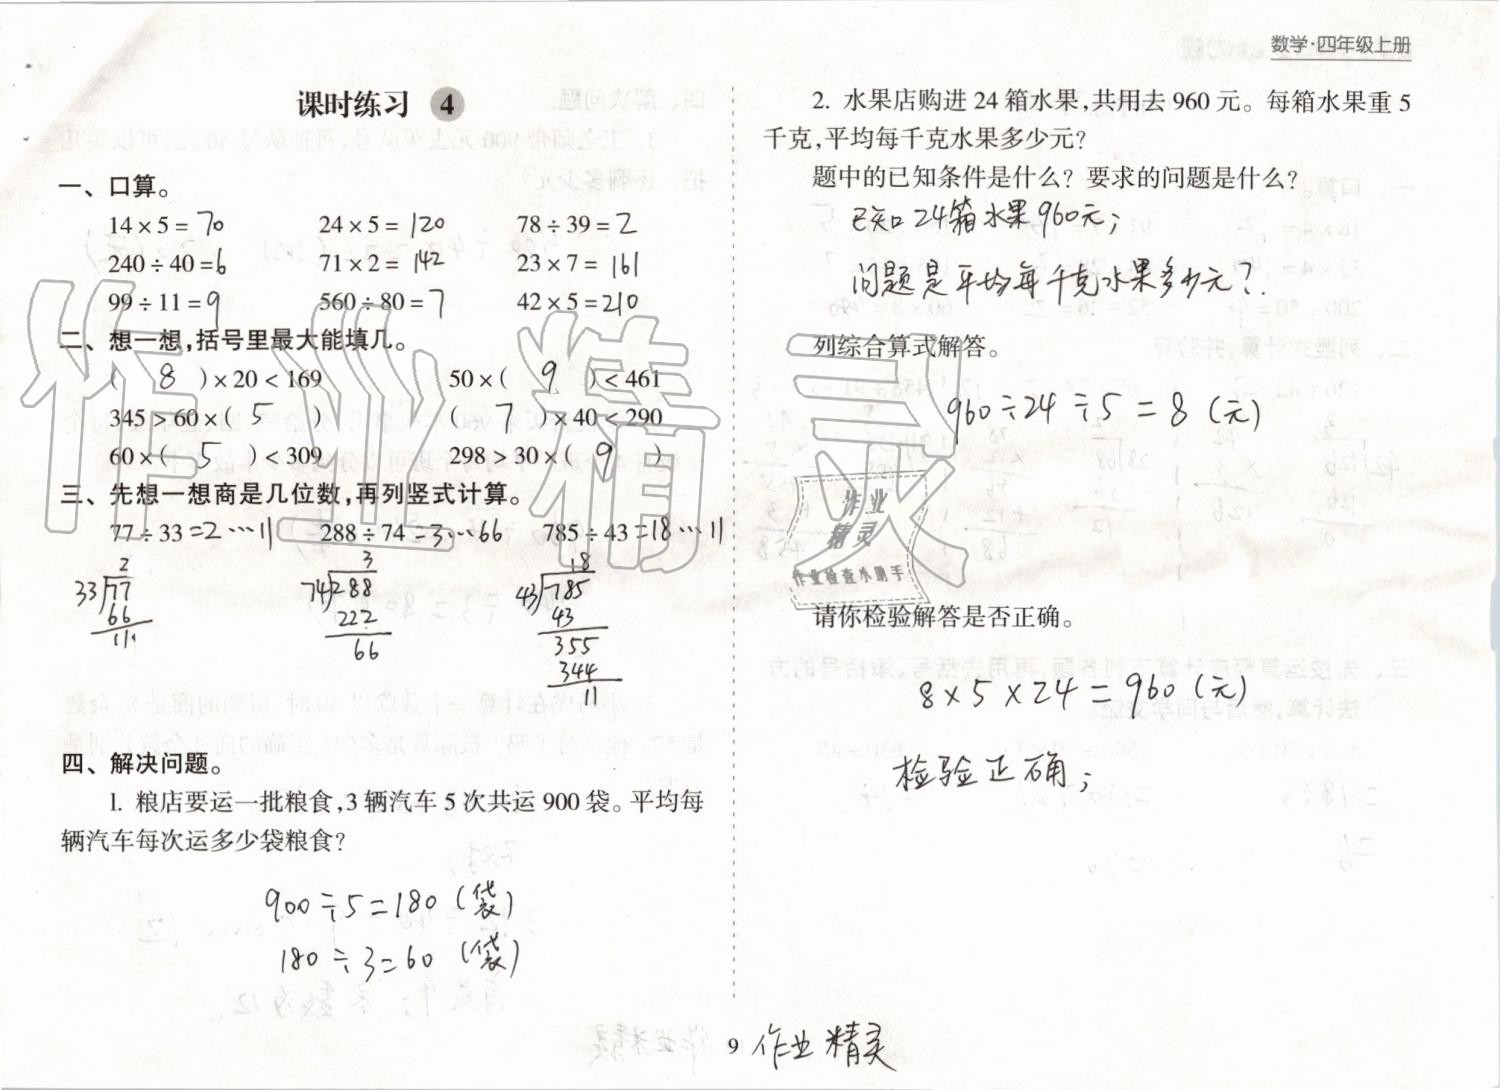 数学·四年级上册
课时练习 4
一、口算。
14×5=70 24×5=120 78÷39=2
240÷40=6 71×2=142 23×7=161
99÷11=9 560÷80=7 42×5=210
二、想一想,括号里最大能填几。
( 8 )×20<169 50×( 9 )<461
345>60×( 5 ) ( 7 )×40<290
60×( 5 )<309 298>30×( 9 )
三、先想一想商是几位数,再列竖式计算。
77÷33=2…11 288÷74=3…66 785÷43=18…11
2 3 18
33 77 74 288 43 785
66 222 43
11 66 355
344
11
四、解决问题。
1. 粮店要运一批粮食,3辆汽车5次共运900袋。平均每
辆汽车每次运多少袋粮食?
900÷5=180(袋)
180÷3=60(袋)
2. 水果店购进24箱水果,共用去960元。每箱水果重5
千克,平均每千克水果多少元?
题中的已知条件是什么?要求的问题是什么?
已知24箱水果960元;
问题是平均每千克水果多少元?
列综合算式解答。
960÷24÷5=8(元)
请你检验解答是否正确。
8×5×24=960(元)
检验正确;
9 作业精灵
作业精灵
作业
精灵
作业检查小助手